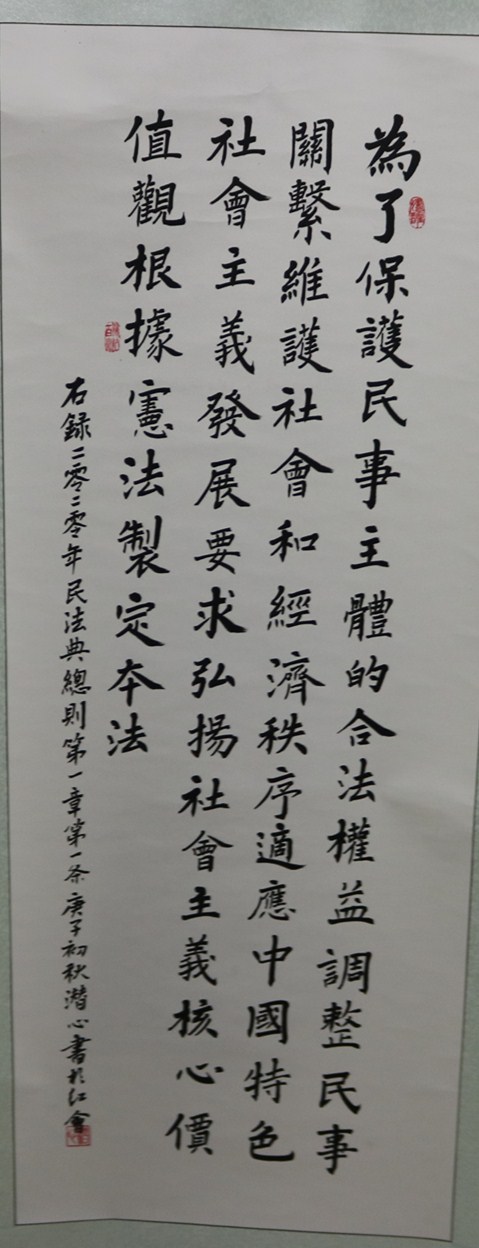 為了保護民事主體的合法權益調整民事
關繫維護社會和經濟秩序適應中國特色
社會主義發展要求弘揚社會主義核心價
值觀根據憲法製定本法
右録二零二零年民法典總則第一章第一条庚子初秋潛心書於红會